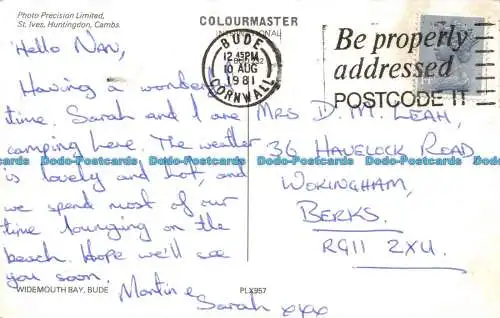 Photo Precision Limited,
St. Ives, Huntingdon, Cambs.
COLOURMASTER
INTERNATIONAL
BUDE
12 45PM
10 AUG
1981
CORNWALL
Be properly
addressed
POSTCODE IT
Hello Nan,
Having a wonderful
time. Sarah and I are
camping here. The weather
is lovely and hot, and
we spend most of our
time lounging on the
beach. Hope we'll see
you soon.
Martin &
Sarah xxx
MRS D. M. LEAH,
36 HAVELOCK ROAD
WOKINGHAM,
BERKS.
RG11 2XU.
WIDEMOUTH BAY, BUDE
PLX957
Dodo-Postcards Dodo-Postcards Dodo-Postcards Dodo-Postcards Dodo-Postcards